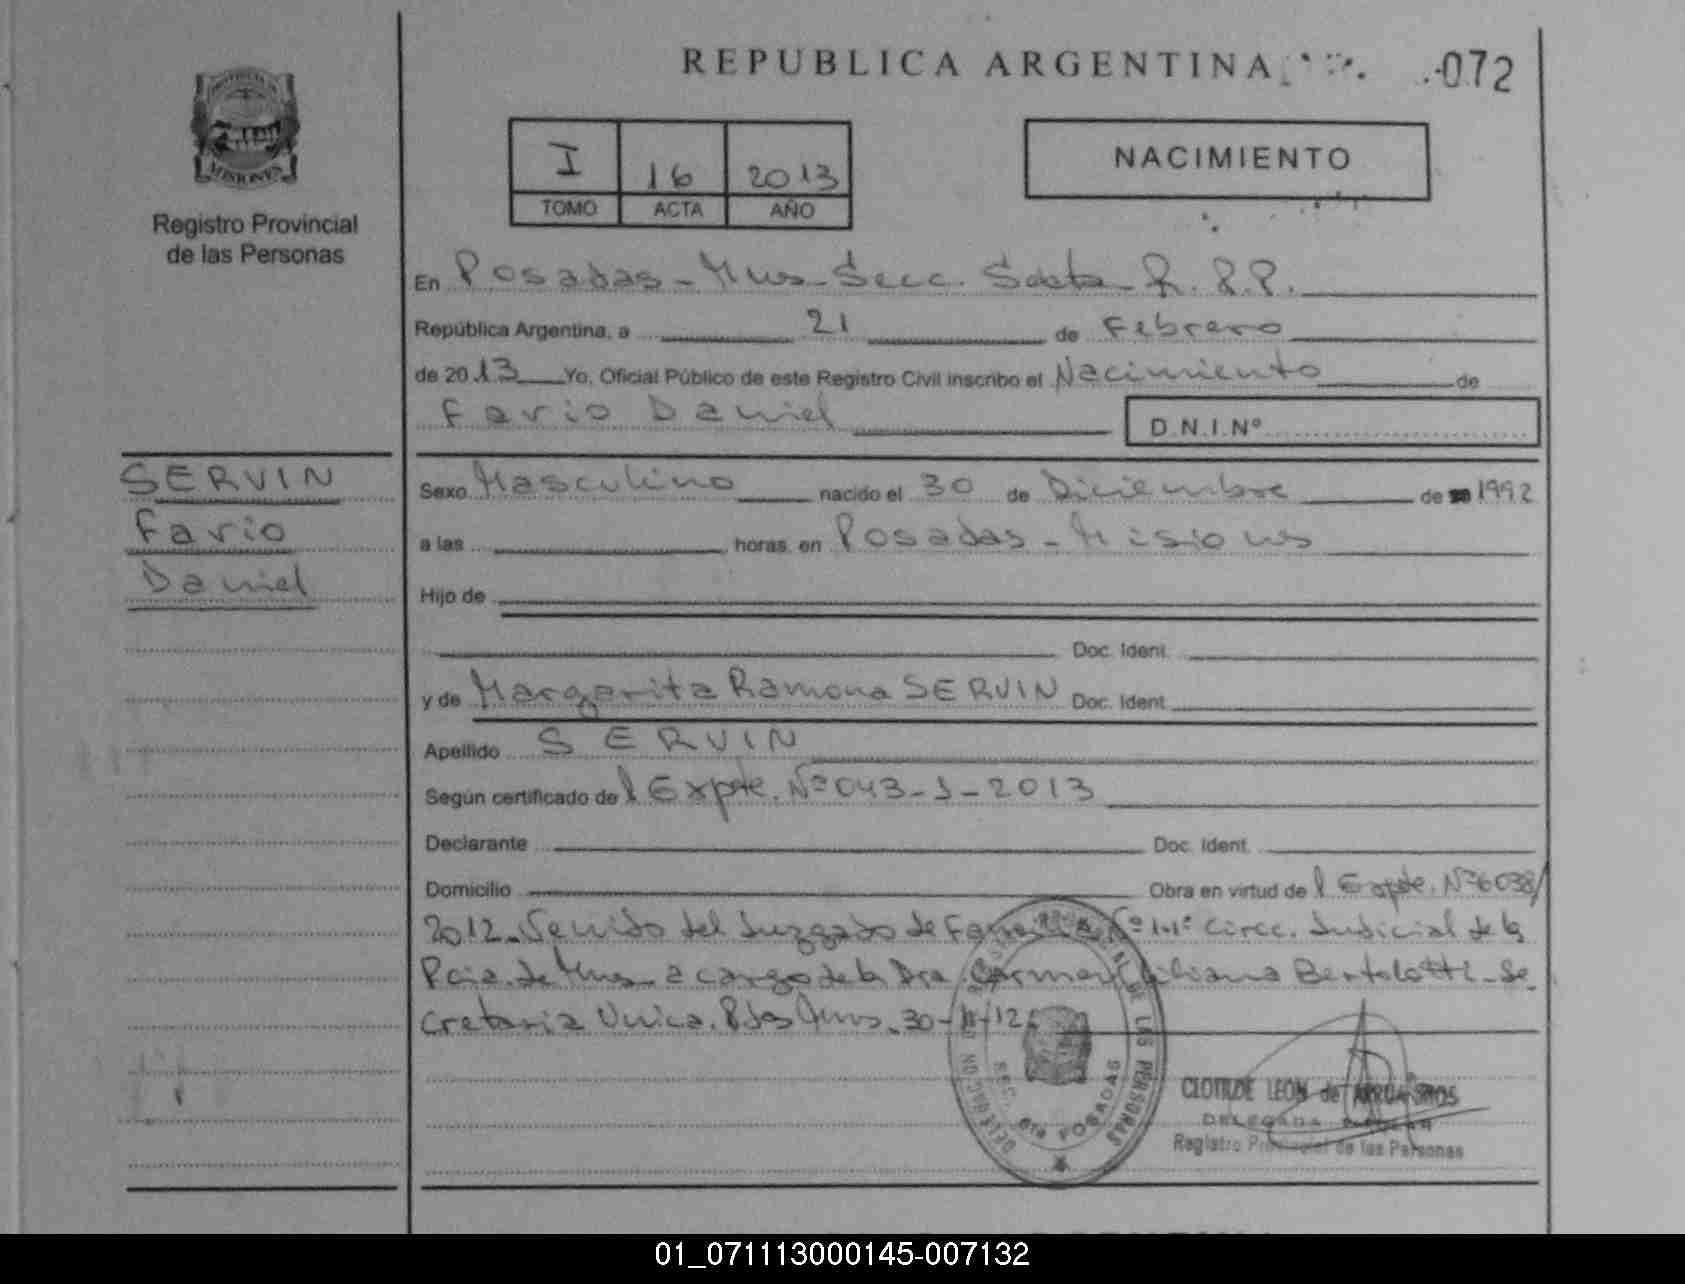 REPUBLICA ARGENTINA
072
I 16 2013
TOMO ACTA AÑO
NACIMIENTO
MISIONES
Registro Provincial
de las Personas
En Posadas - Mnes - Secc. Sexta R. P. P.
República Argentina, a 21 de Febrero
de 2013 Yo, Oficial Público de este Registro Civil inscribo el Nacimiento de
Favio Daniel D.N.I.Nº
SERVIN
Favio
Daniel
Sexo Masculino nacido el 30 de Diciembre de 1992
a las horas, en Posadas - Misiones
Hijo de
Doc. Ident.
y de Margarita Ramona SERVIN Doc. Ident.
Apellido SERVIN
Según certificado del Expte. Nº 043-1-2013
Declarante Doc. Ident.
Domicilio Obra en virtud del Expte. Nº 6038/
2012 - Venido del Juzgado de Familia Nº 1-1º Circc. Judicial de la
Pcia. de Mnes - a cargo de la Dra. Carmen Liliana Bertolotti - Se
cretaria Unica. Pdas Mnes. 30-11-12
DE LAS PERSONAS
SEC. 6ta POSADAS
CLOTILDE LEON de
DELEGADA
Registro Provincial de las Personas
01_071113000145-007132